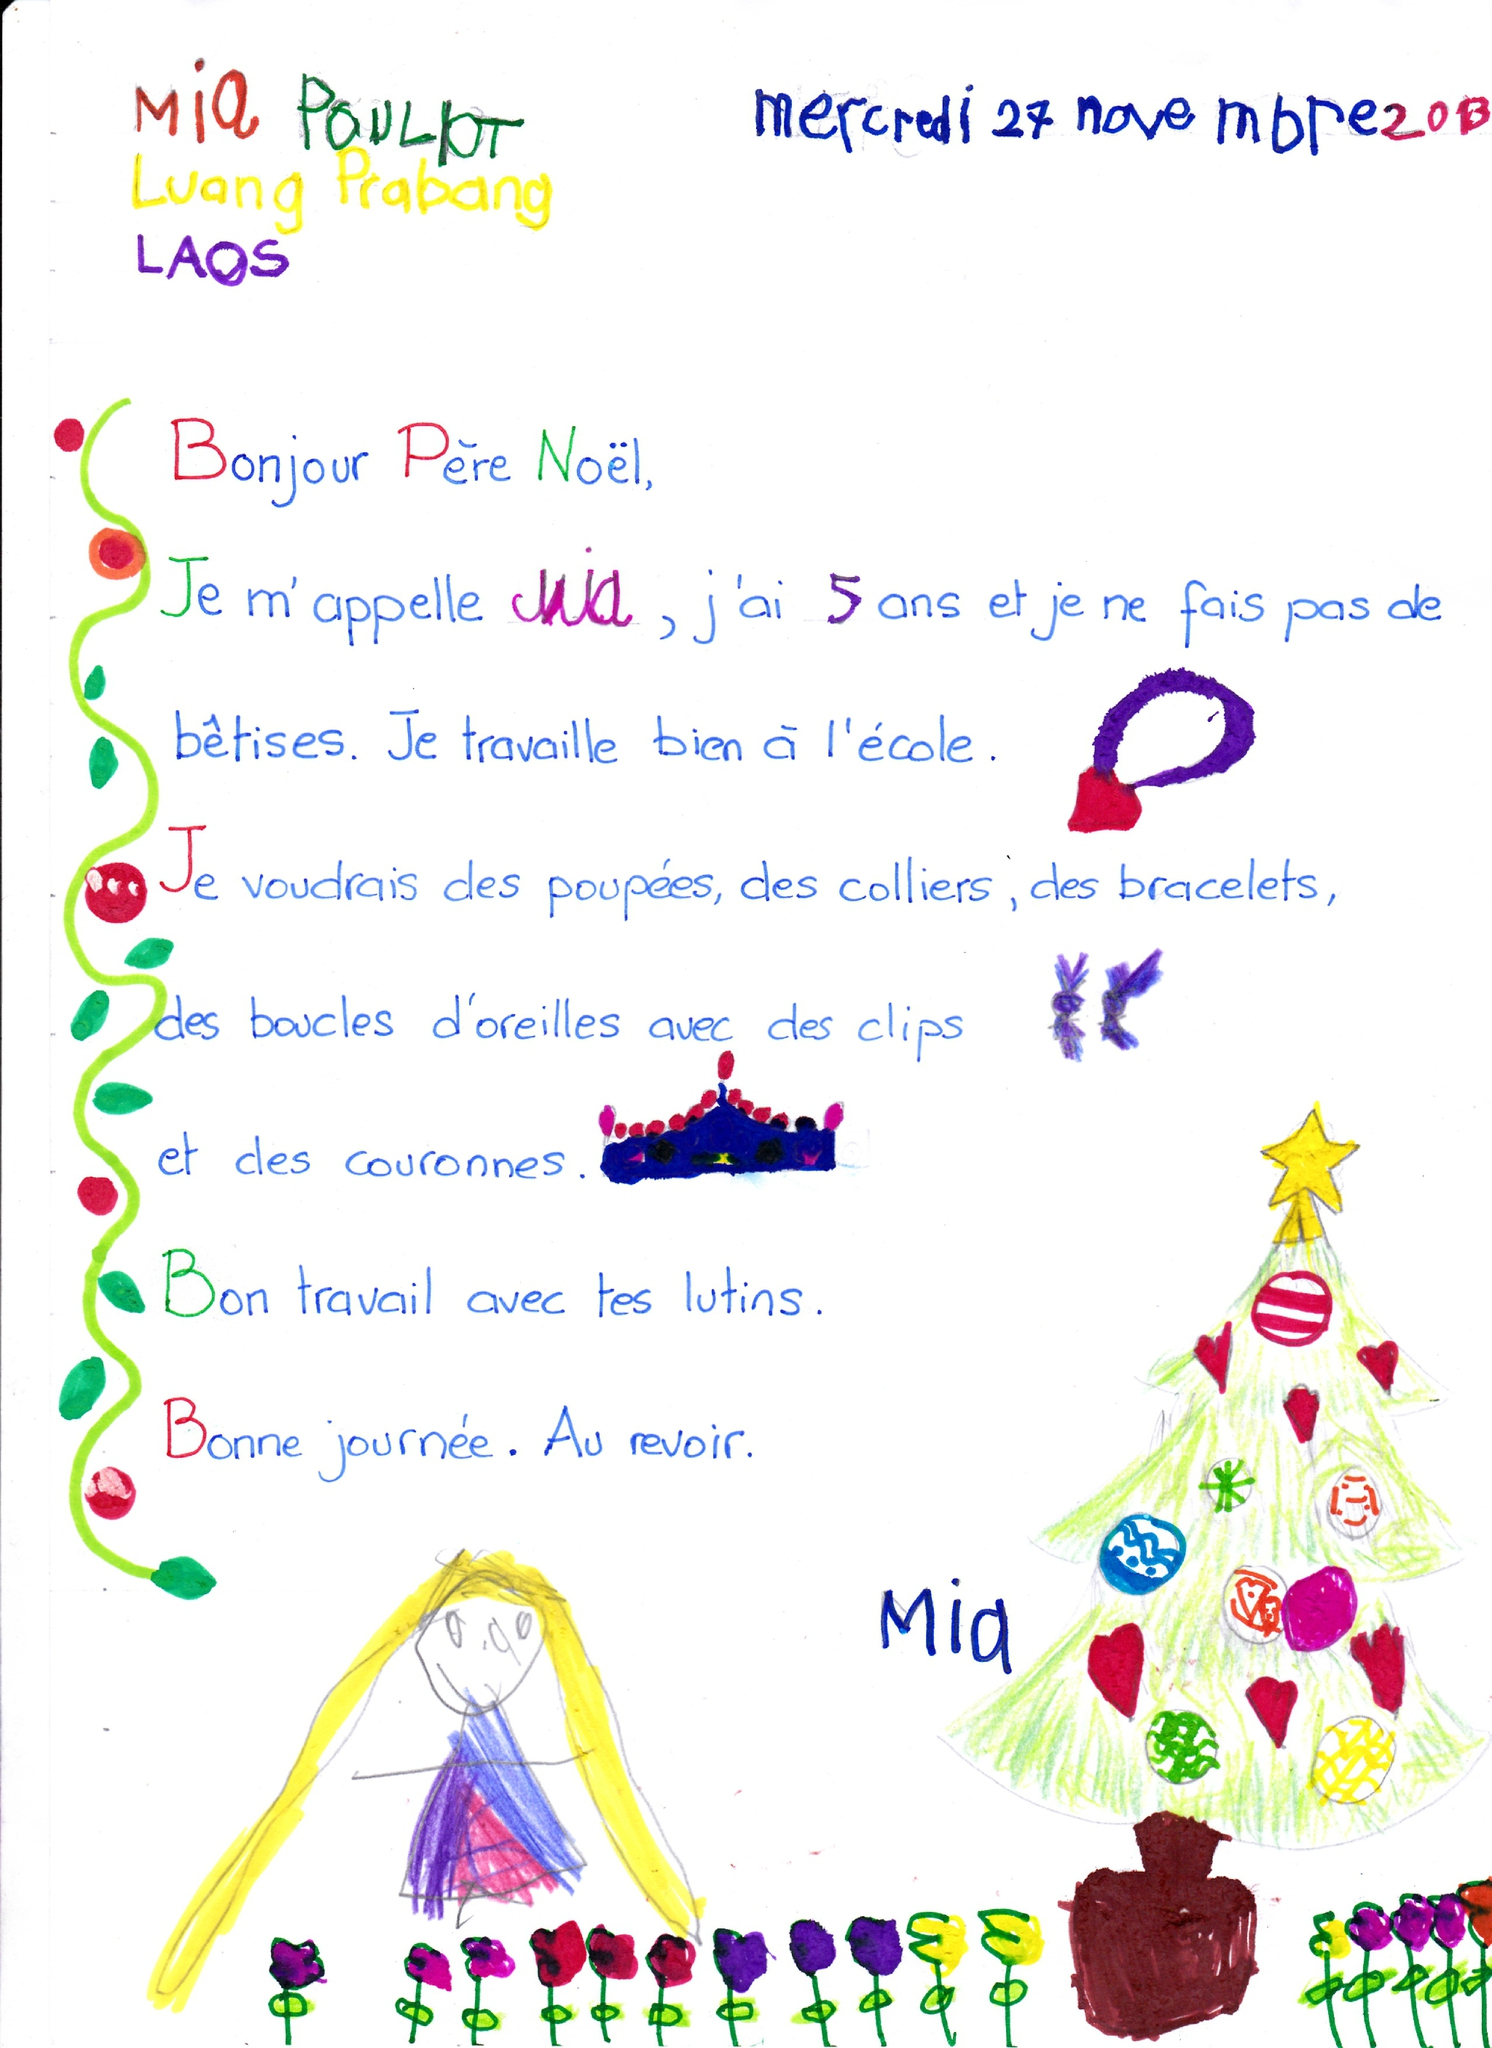 Mia POULIOT
mercredi 27 novembre 2013
Luang Prabang
LAOS
Bonjour Père Noël,
Je m'appelle Mia, j'ai 5 ans et je ne fais pas de
bêtises. Je travaille bien à l'école.
Je voudrais des poupées, des colliers, des bracelets,
des boucles d'oreilles avec des clips
et des couronnes.
Bon travail avec tes lutins.
Bonne journée. Au revoir.
Mia